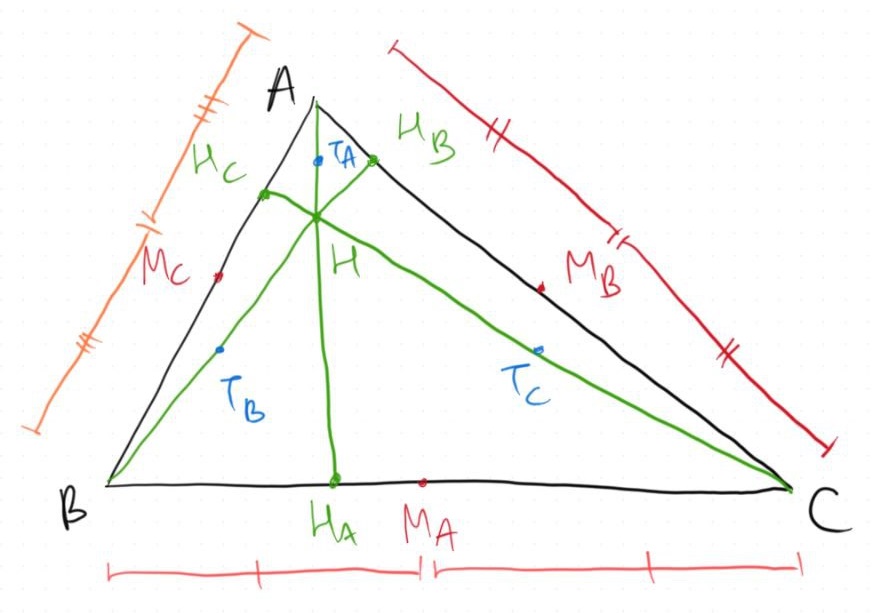 A
H_B
T_A
H_C
H
M_C
M_B
T_B
T_C
B
H_A
M_A
C